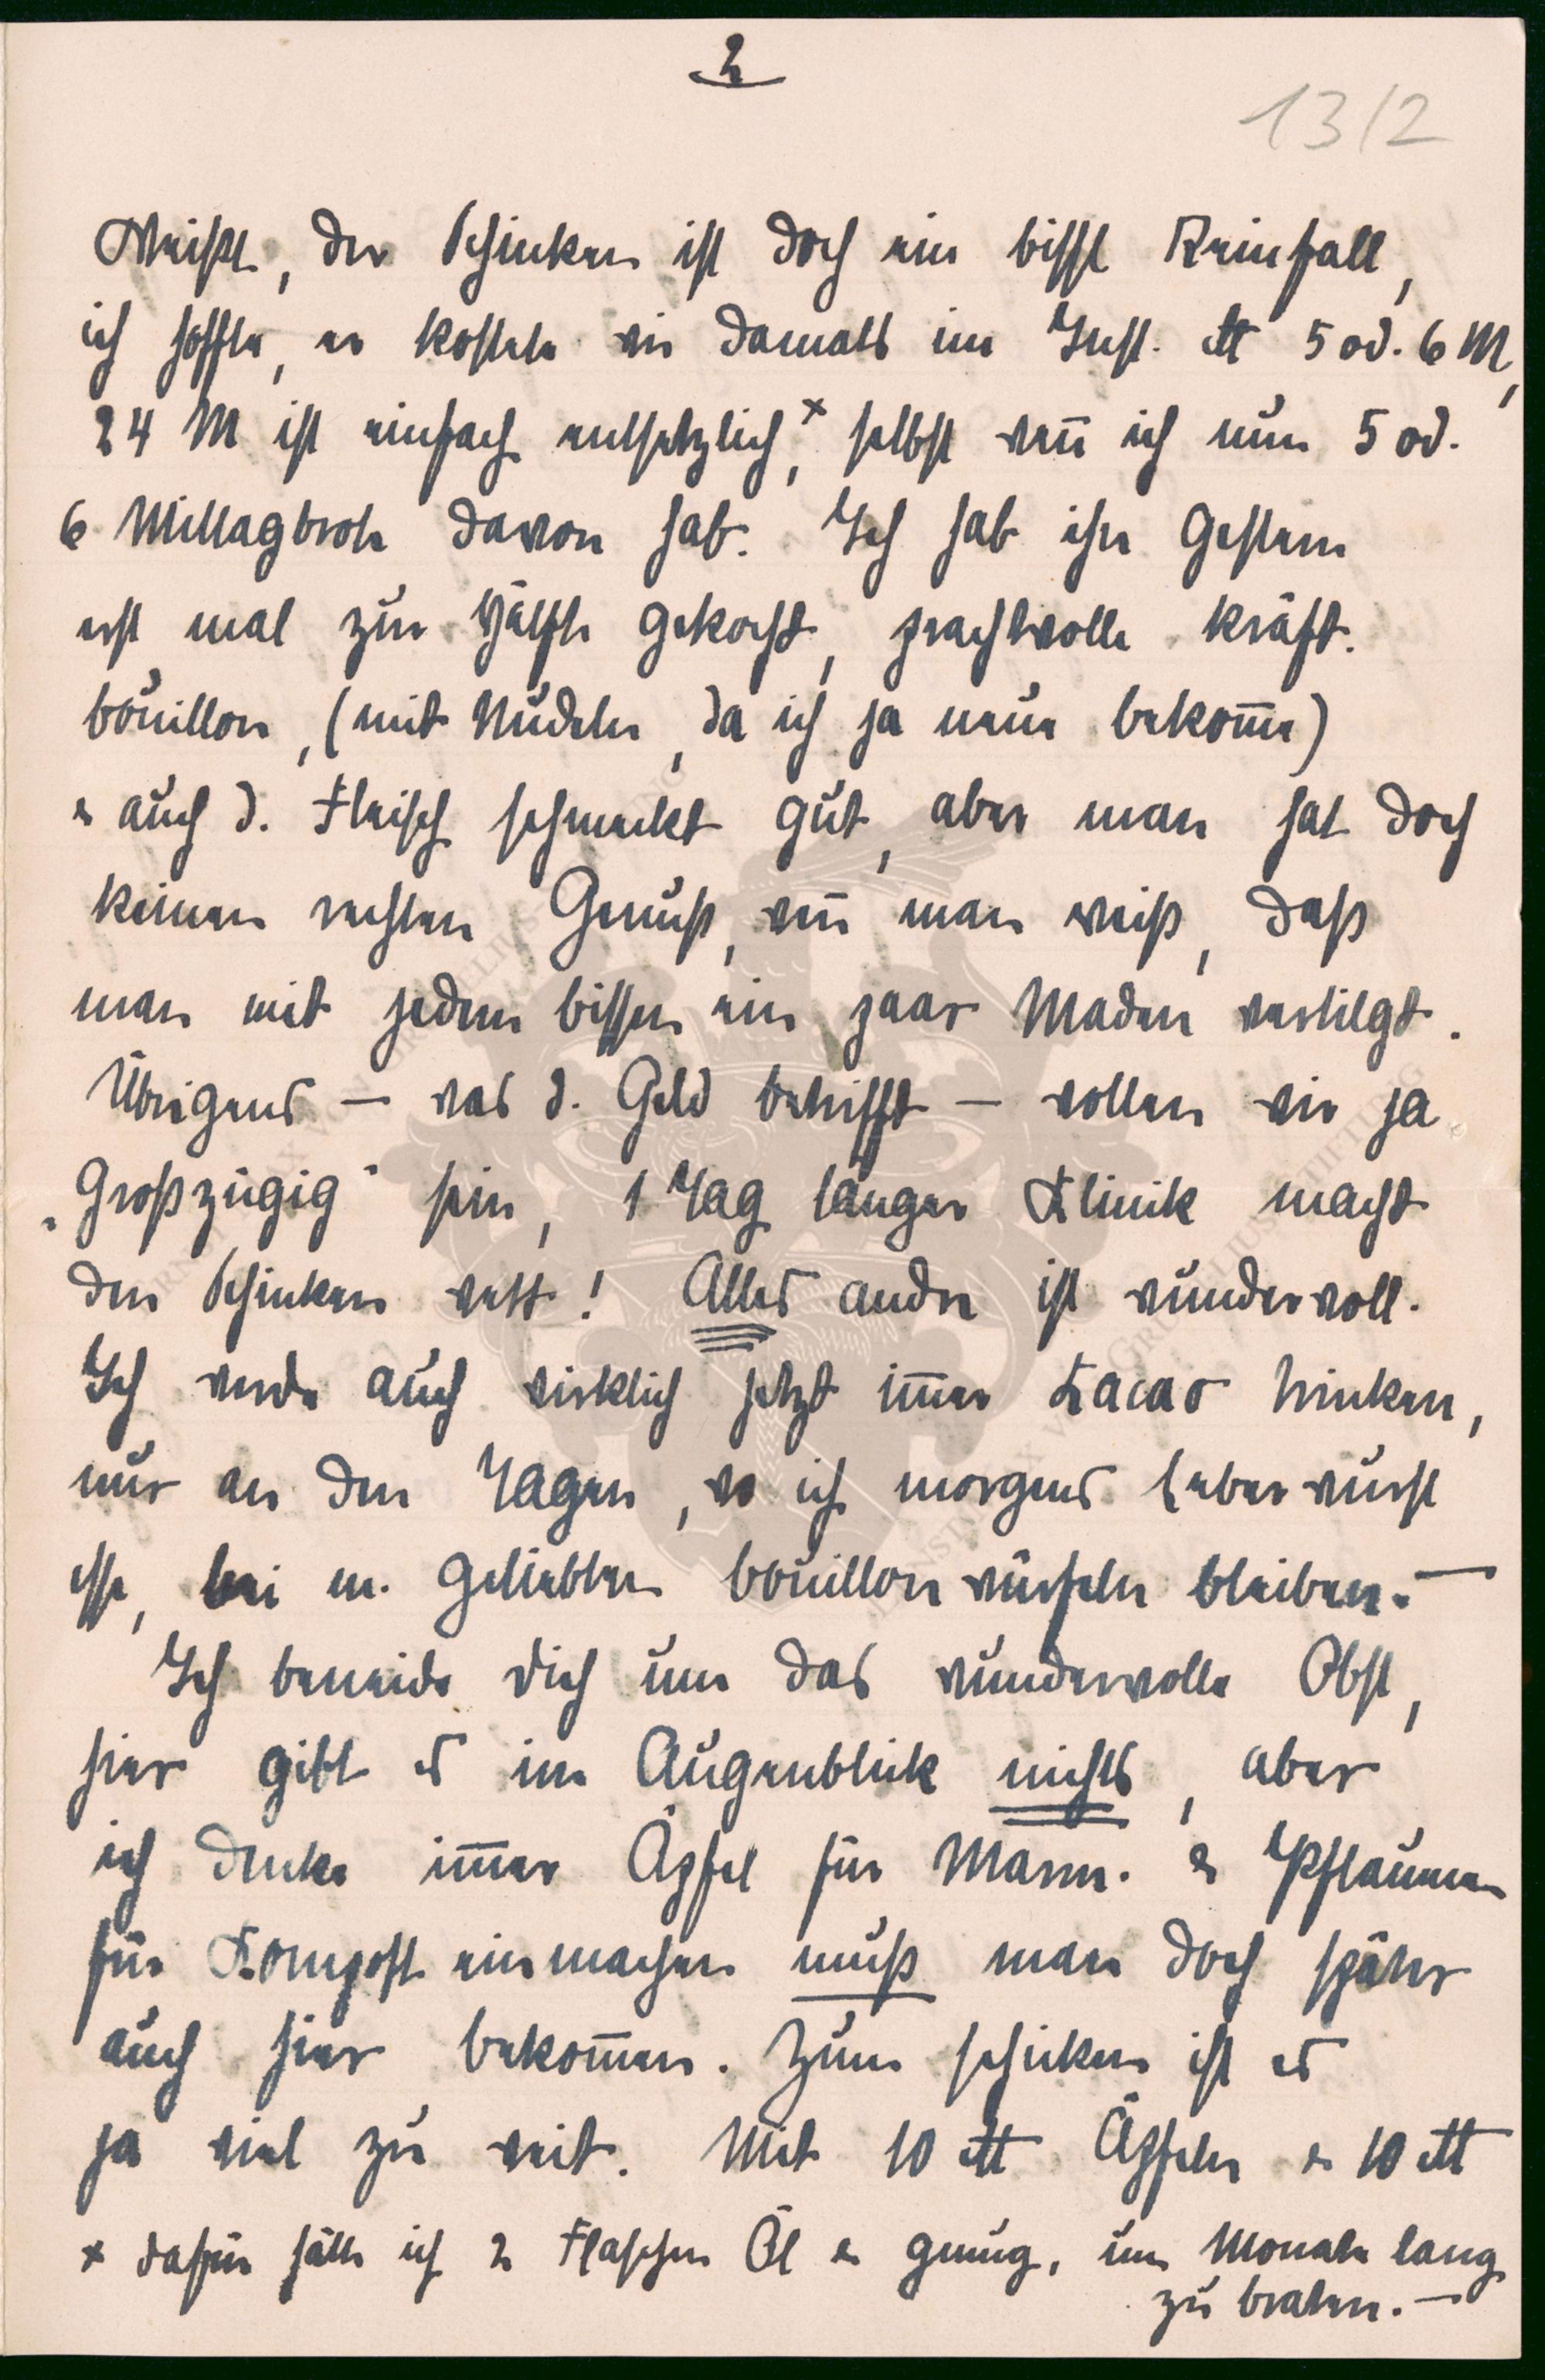 2
13/2
Weißt, der Schinken ist doch ein bissl Reinfall,
ich hoffte, er kostete wie damals im Inst. ℔ 5 od. 6 M,
24 M ist einfach entsetzlich,× selbst wen̄ ich nun 5 od.
6 Mittagbrote davon hab. Ich hab ihn gestern
erst mal zur Hälfte gekocht, prachtvolle kräft.
bouillon, (mit Nudeln, da ich ja neue bekom̄e)
& auch d. Fleisch schmeckt gut, aber man hat doch
keinen rechten Genuß, wen̄ man weiß, daß
man mit jedem bissen ein paar Maden vertilgt.
Übrigens – was d. Geld betrifft – wollen wir ja
„großzügig“ sein, 1 Tag länger Klinik macht
den Schinken wett! Alles andre ist wundervoll.
Ich werde auch wirklich jetzt im̄er Kacao trinken,
nur an den Tagen, wo ich morgens Leberwurst
esse, bei m. geliebten bouillonwürfeln bleiben. –
Ich beneide Dich um das wundervolle Obst,
hier gibt es im Augenblick nichts, aber
ich denke im̄er Äpfel für Marm. & Pflaumen
für Kompott einmachen muß man doch später
auch hier bekom̄en. Zum schicken ist es
ja viel zu weit. Mit 10 ℔ Äpfeln & 10 ℔
× dafür hätte ich 2 Flaschen Öl & genug, um Monate lang
zu braten. –